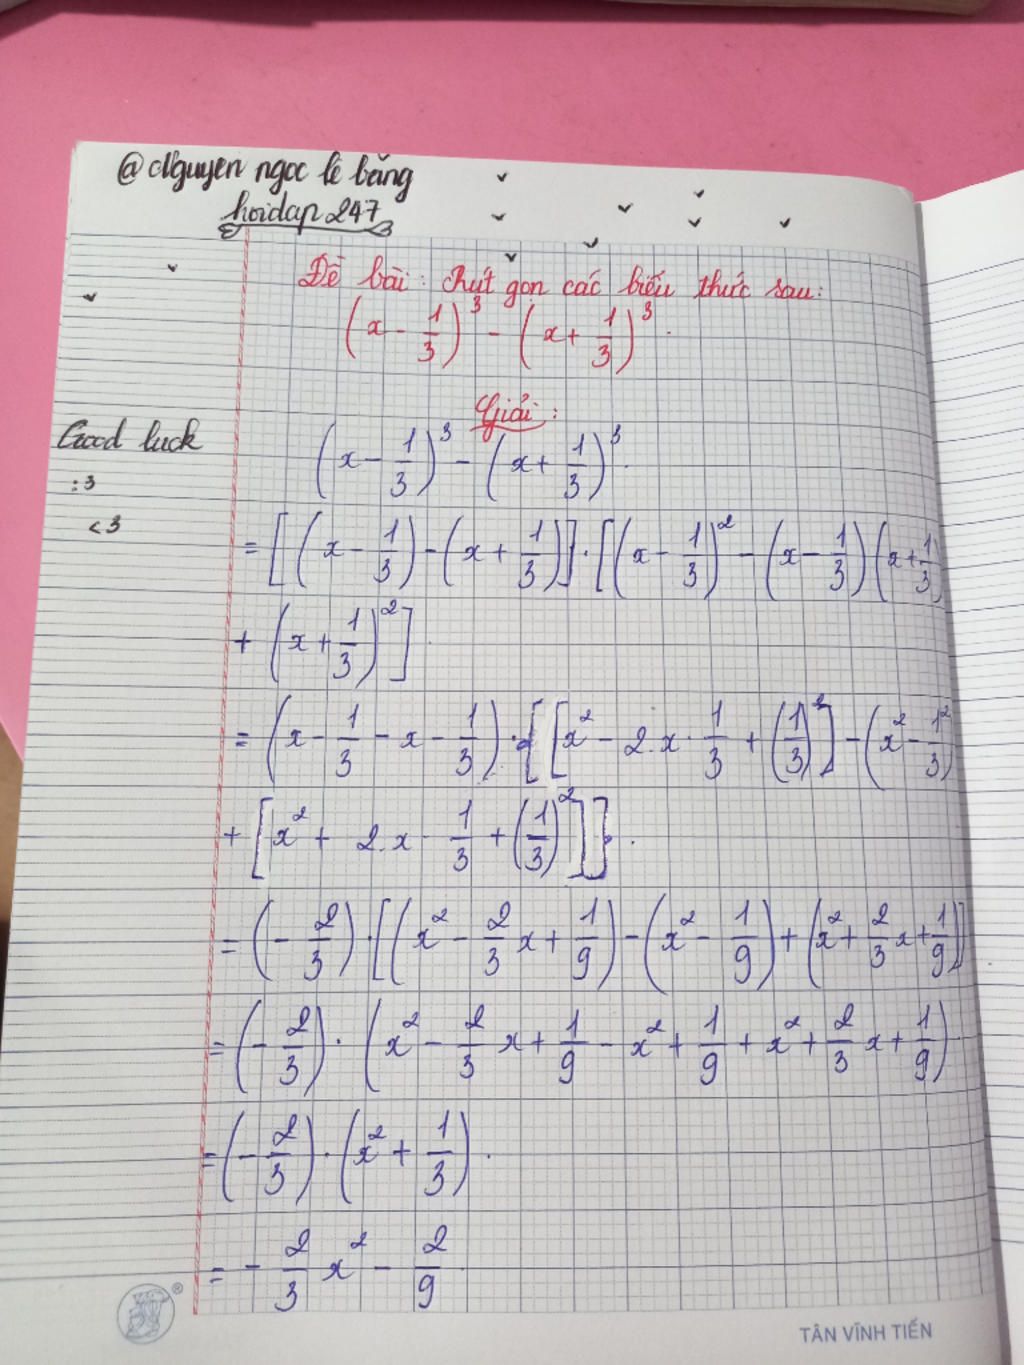 @Nguyen ngoc lê băng
hoidap 247
Đề bài: Rút gọn các biểu thức sau:
(x - 1/3)³ - (x + 1/3)³.
Giải:
Good luck
:3
<3
(x - 1/3)³ - (x + 1/3)³.
= [(x - 1/3) - (x + 1/3)] · [(x - 1/3)² - (x - 1/3)(x + 1/3)
+ (x + 1/3)²].
= (x - 1/3 - x - 1/3) · {[x² - 2.x · 1/3 + (1/3)²] - (x² - 1²/3)
+ [x² + 2.x · 1/3 + (1/3)²]}.
= (- 2/3) · [(x² - 2/3 x + 1/9) - (x² - 1/9) + (x² + 2/3 x + 1/9)]
= (- 2/3) · (x² - 2/3 x + 1/9 - x² + 1/9 + x² + 2/3 x + 1/9)
= (- 2/3) · (x² + 1/3).
= - 2/3 x² - 2/9.
®
TÂN VĨNH TIẾN